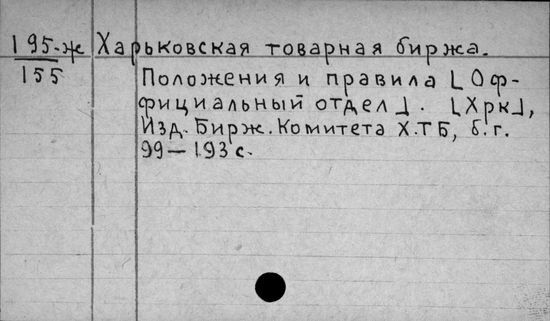 195-ж Харьковская товарная биржа.
155 Положения и правила [Оф-
фициальный отдел]. [Хрк],
Изд. Бирж. Комитета Х.ТБ, б.г.
99—193 с.